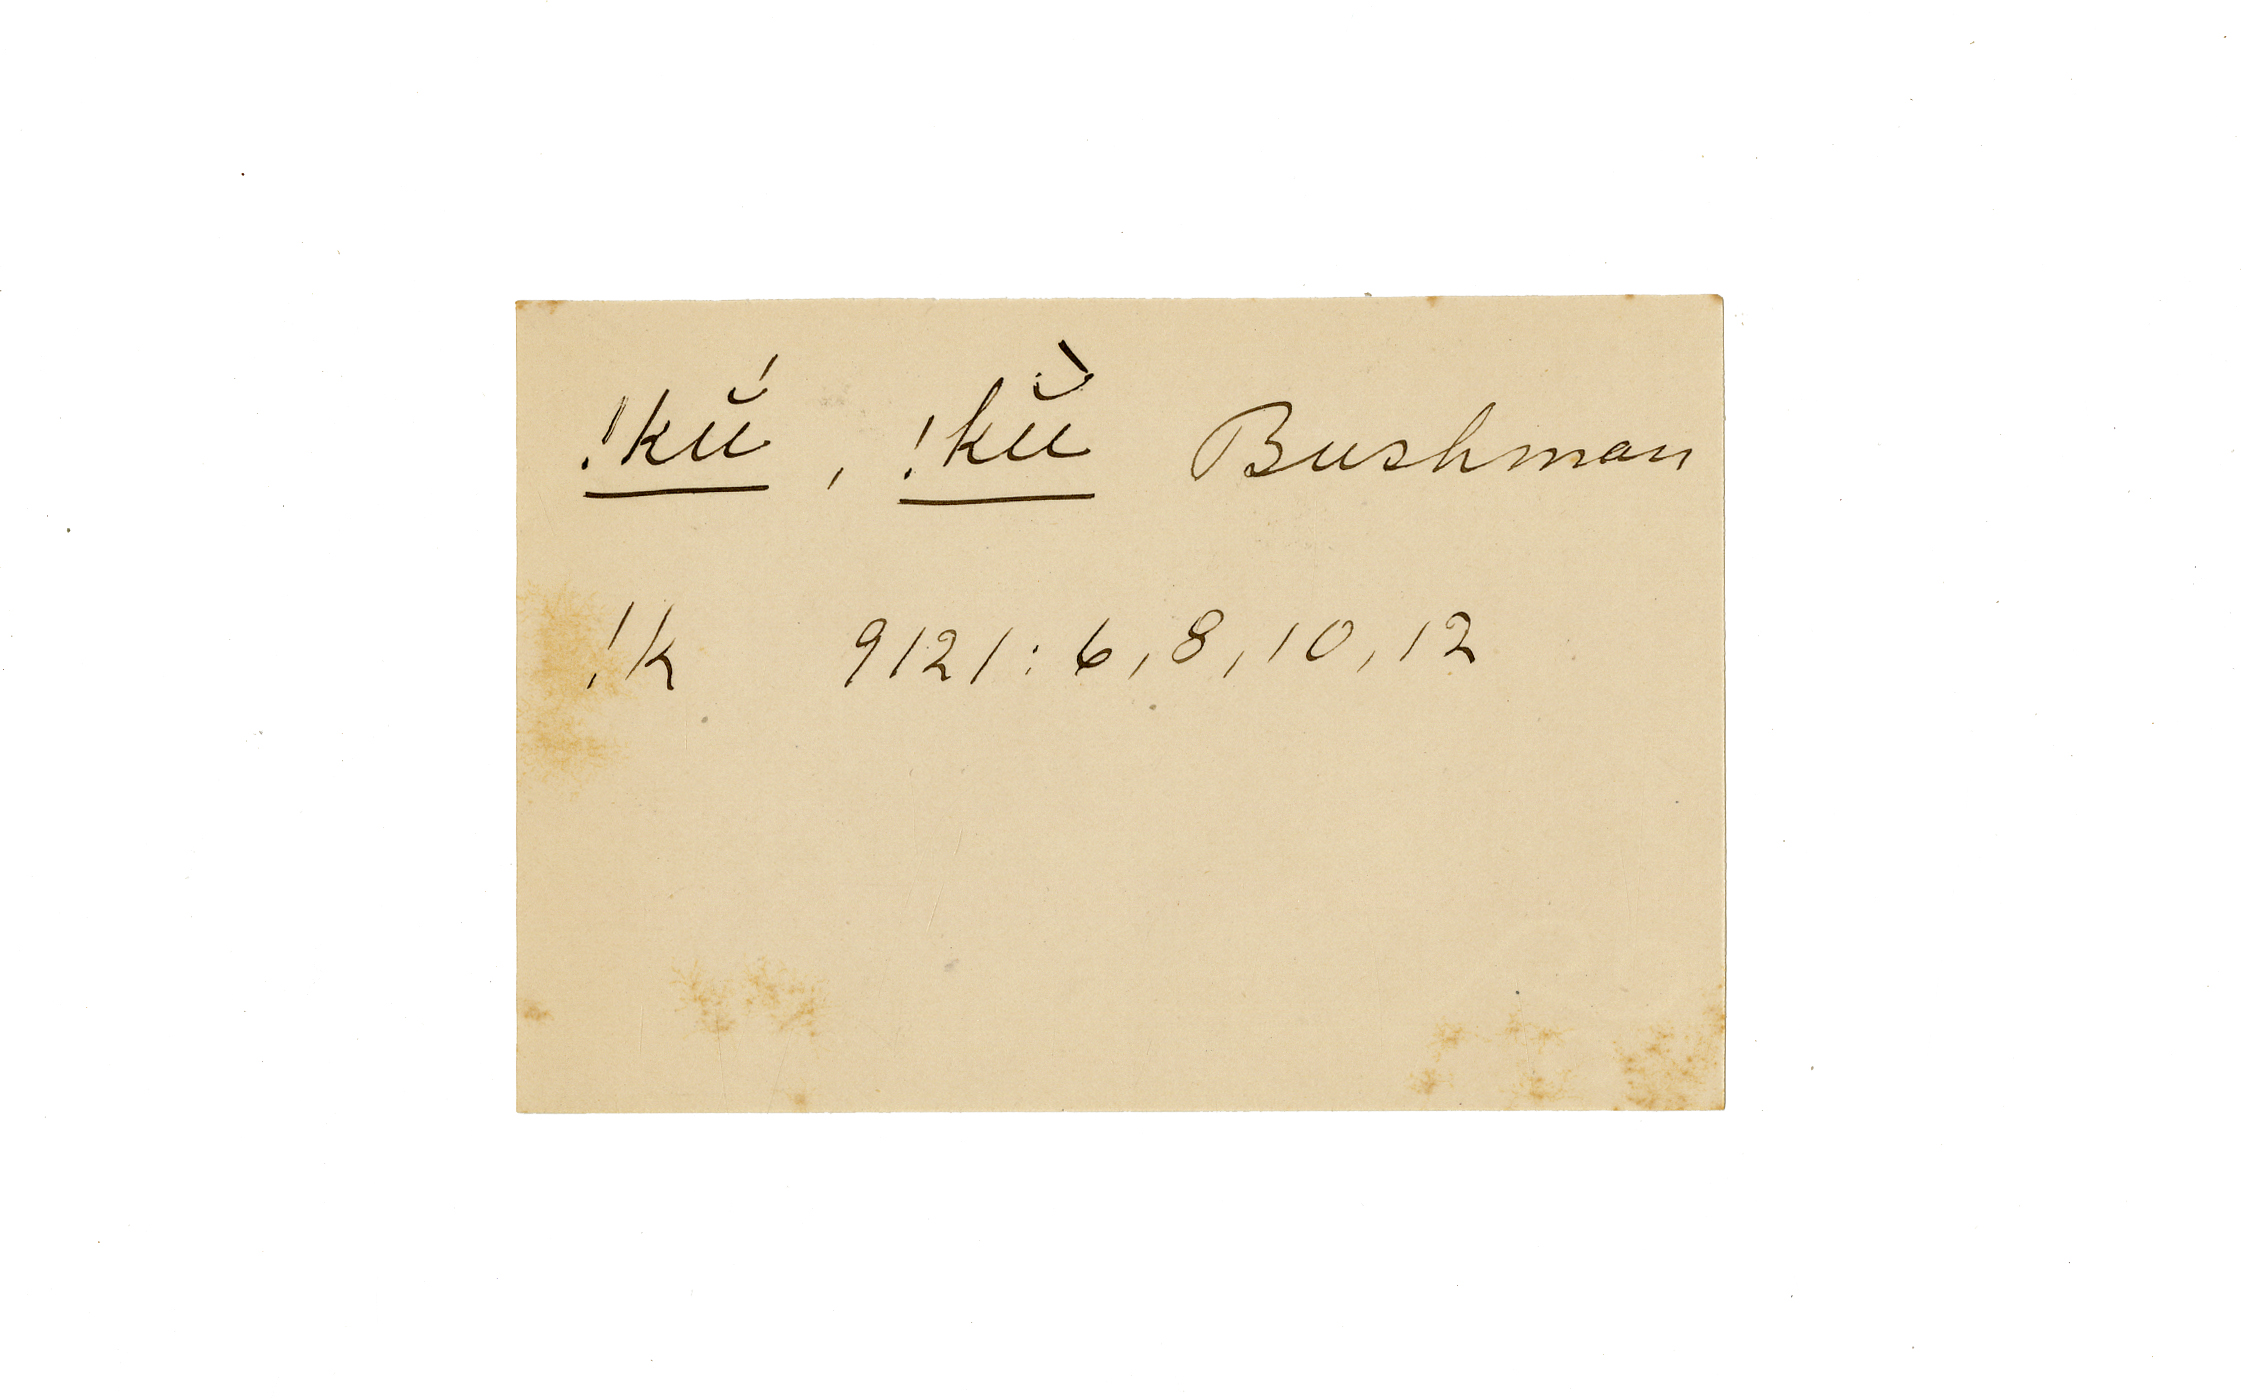 !kŭ́, !kŭ̀ Bushman
!k 9121: 6, 8, 10, 12